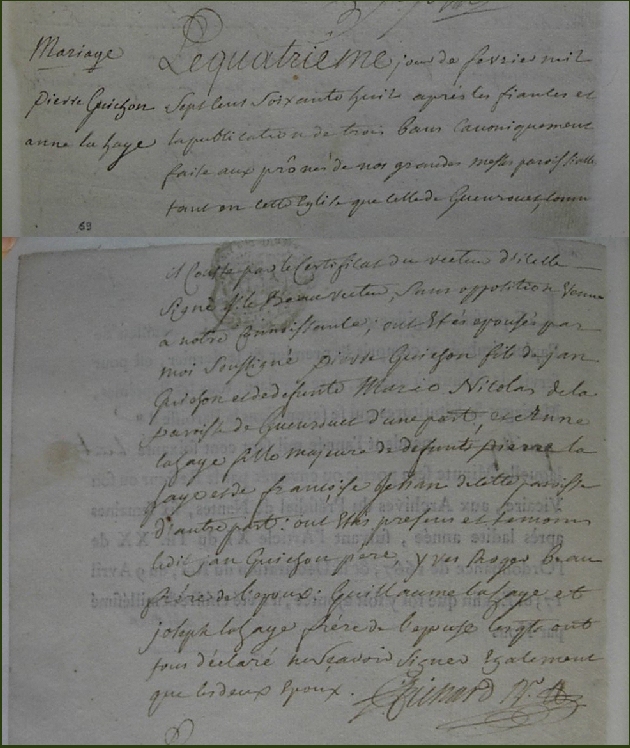 Mariage
pierre Guichon
anne la haye
Le quatrième jour de fevrier mil
sept cens soixante huit après les fiances et
la publication de trois bans canoniquement
faite aux prônes de nos grandes messes paroissialle
tant en cette Eglise que celle de Guenrouet, comm
69
il conste par le Certificat du recteur d'icelle
signé f. le Beau recteur, sans opposition venue
a notre connoissance; ont Etés epousés par
moi soussigné pierre Guichon fils de jan
Guichon et de defunte Marie Nicolas de la
paroisse de Guenrouet d'une part, et Anne
la haye fille majeure de defunt pierre la
haye et de françoise jehan de cette paroisse
d'autre part: ont Etés presens et temoins
ledit jan Guichon pere, yves beau
frére de l'epoux: Guillaume la haye et
joseph la haye frére de l'epouse lesqls ont
tous déclaré ne sçavoir signer Egalement
que les deux Epoux.